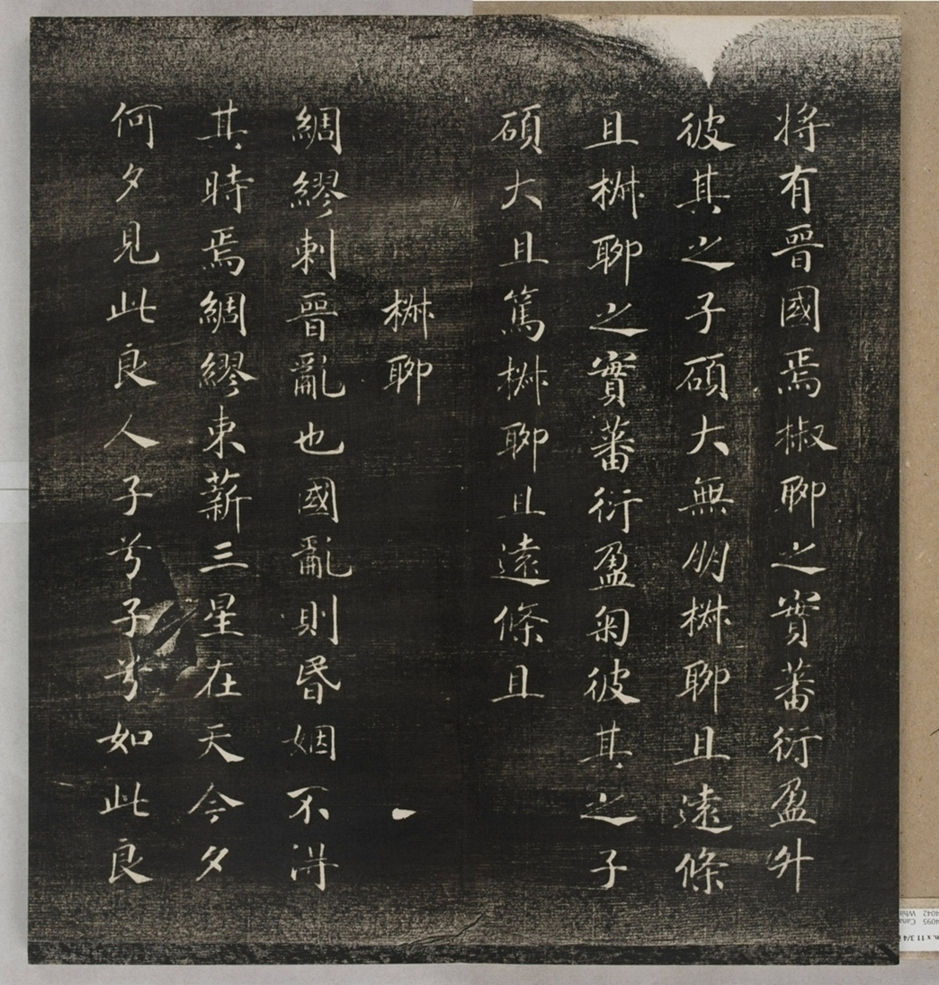 將有晉國焉椒聊之實蕃衍盈升
彼其之子碩大無朋椒聊且遠條
且椒聊之實蕃衍盈匊彼其之子
碩大且篤椒聊且遠條且
椒聊 一
綢繆刺晉亂也國亂則昏姻不得
其時焉綢繆束薪三星在天今夕
何夕見此良人子兮子兮如此良